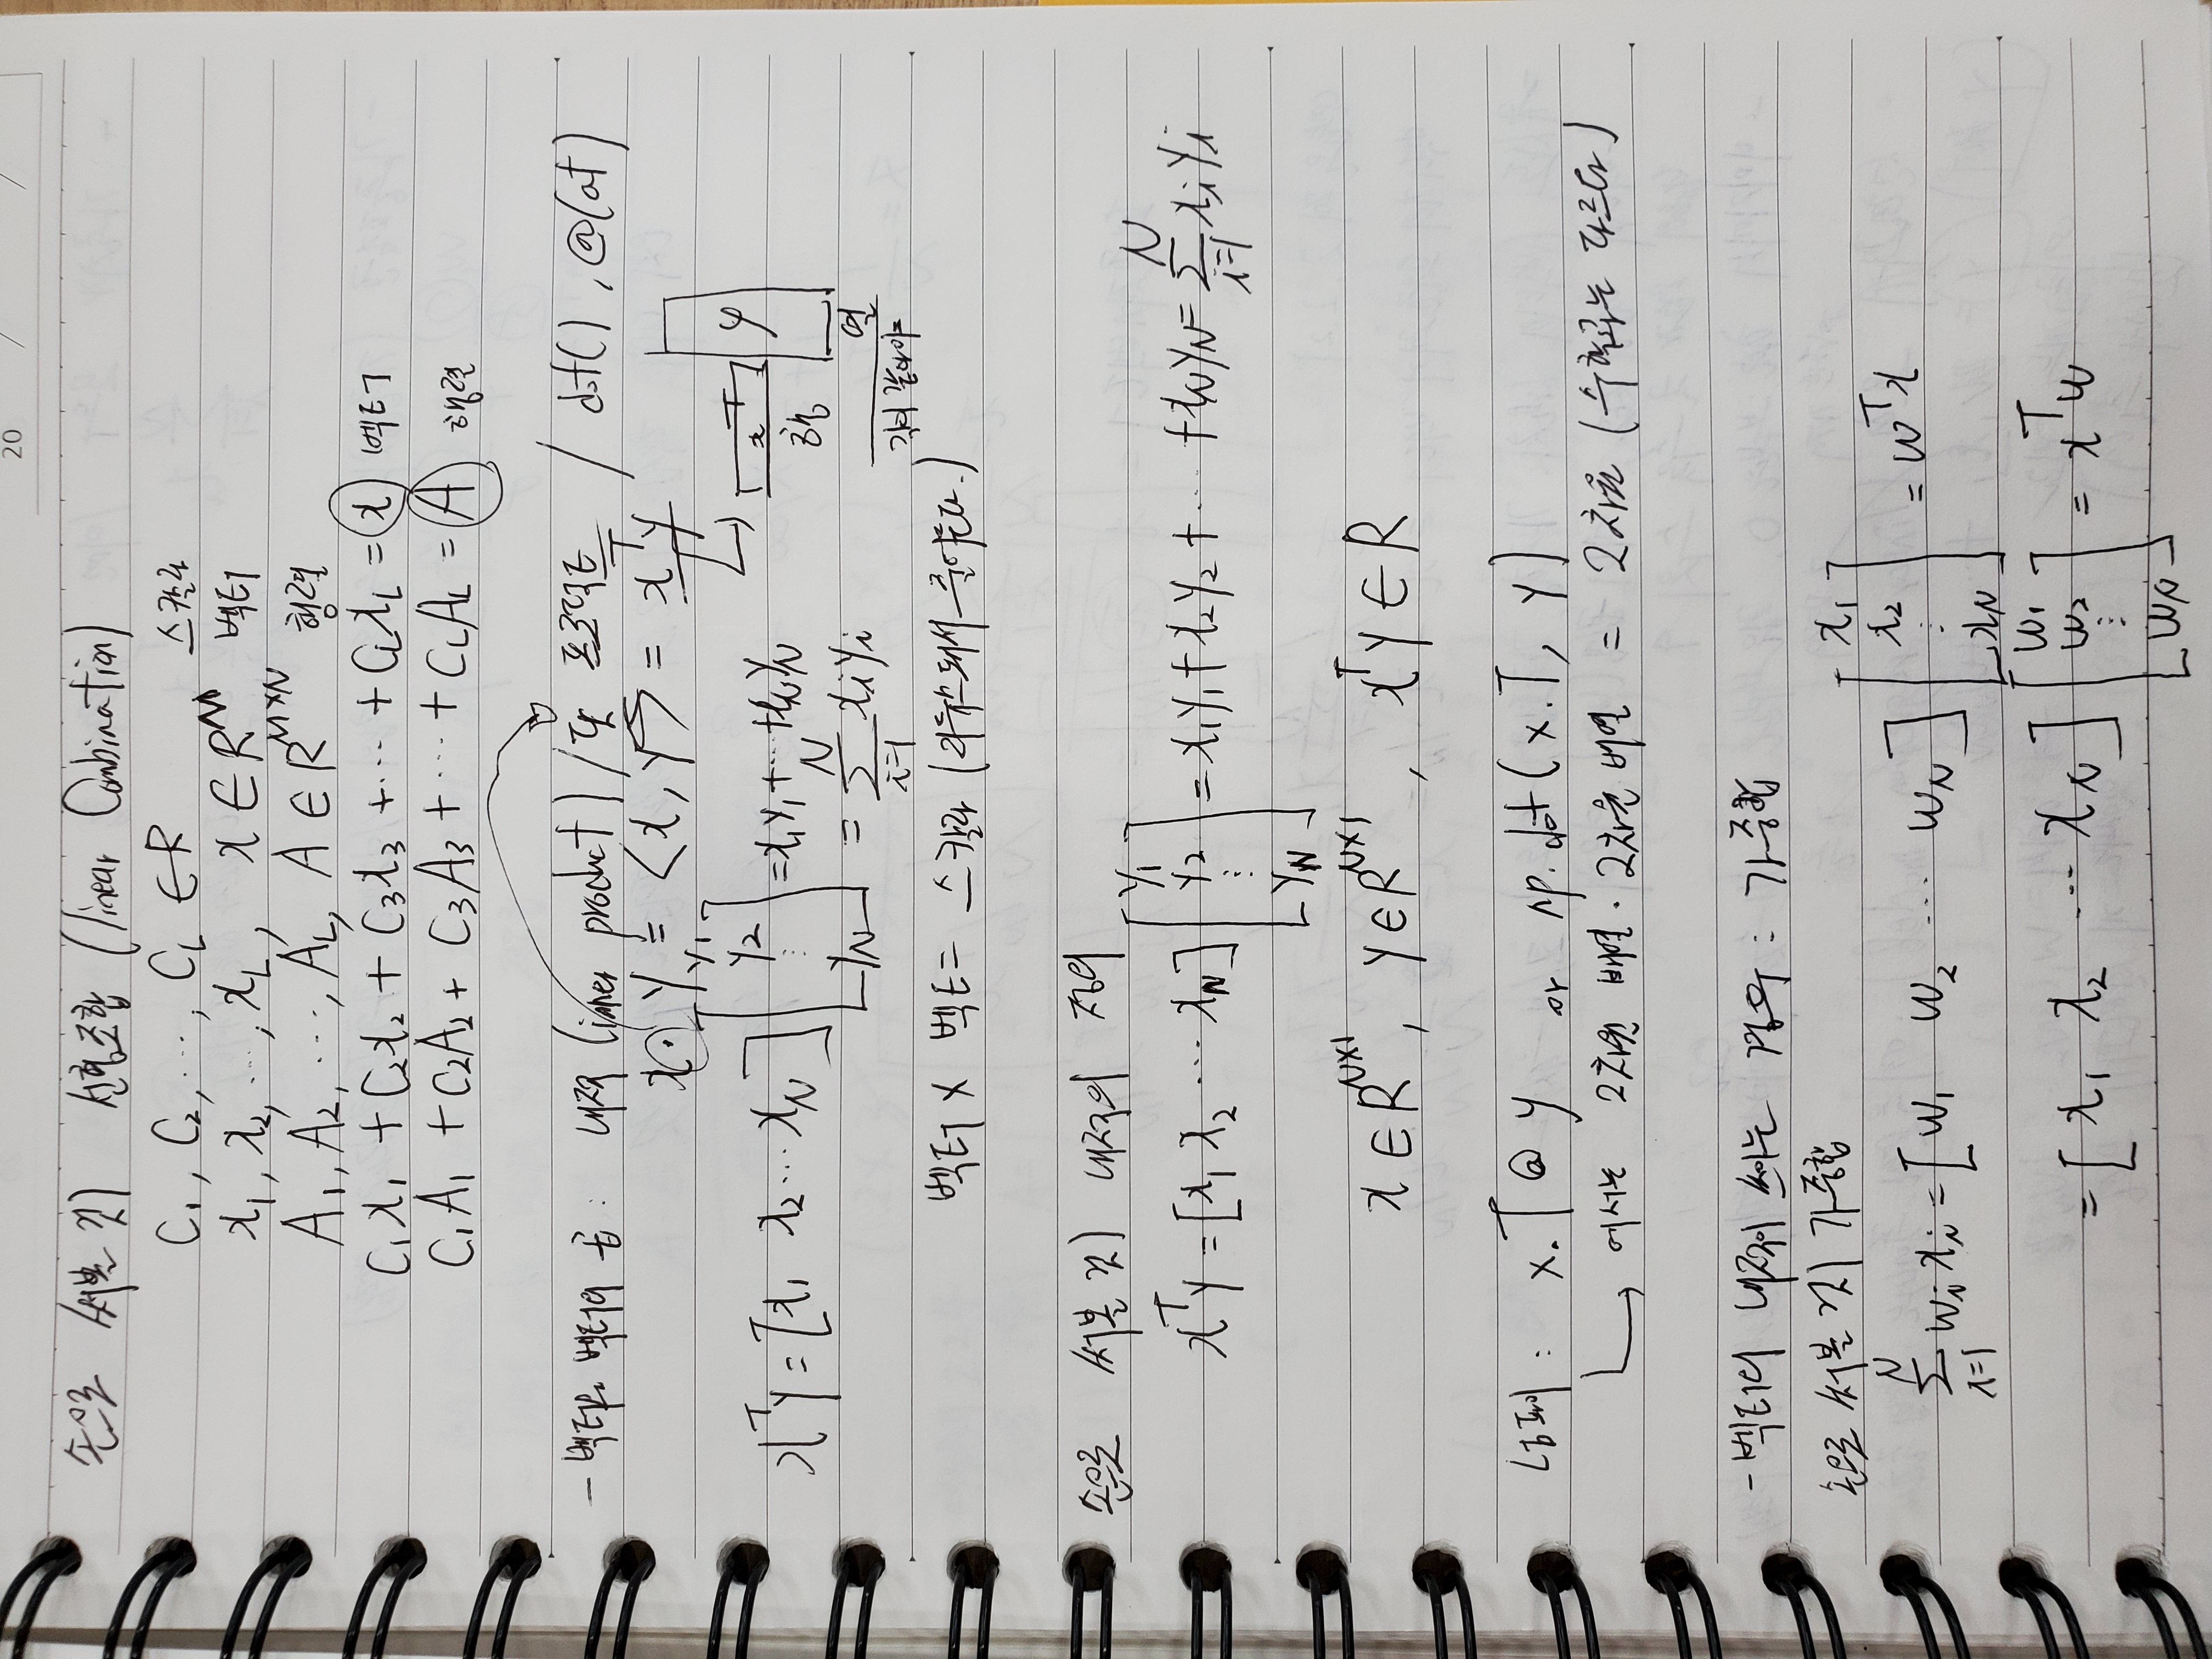 20 / /
손으로 써볼 것) 선형조합 (linear Combination)
C₁, C₂, ..., C_L ∈ R 스칼라
x₁, x₂, ..., x_L, x ∈ R^M 벡터
A₁, A₂, ..., A_L, A ∈ R^{M×N} 행렬
C₁x₁ + C₂x₂ + C₃x₃ + ... + C_Lx_L = x 벡터
C₁A₁ + C₂A₂ + C₃A₃ + ... + C_LA_L = A 행렬
- 벡터와 벡터의 곱 : 내적 (inner product) / 닷 프로덕트 / dot(), @(at)
x · y = <x, y> = x^T y
x^T y = [x₁ x₂ ... x_N] [y₁ y₂ ⋮ y_N] = x₁y₁ + ... + x_Ny_N
= Σ_{i=1}^{N} x_i y_i
x^T y
행 열
벡터 × 벡터 = 스칼라 (리듀스돼서 줄어든다.)
손으로 써볼 것) 내적의 정의
x^T y = [x₁ x₂ ... x_N] [y₁ y₂ ⋮ y_N] = x₁y₁ + x₂y₂ + ... + x_Ny_N = Σ_{i=1}^{N} x_i y_i
x ∈ R^{N×1}, y ∈ R^{N×1}, x^T y ∈ R
넘파이 : x.T @ y or np.dot(x.T, y)
에서는 2차원 배열 · 2차원 배열 = 2차원 (수학과는 다르다)
- 벡터의 내적이 쓰이는 경우 : 가중합
손으로 써볼 것) 가중합
Σ_{i=1}^{N} w_i x_i = [w₁ w₂ ... w_N] [x₁ x₂ ⋮ x_N] = w^T x
= [x₁ x₂ ... x_N] [w₁ w₂ ⋮ w_N] = x^T w